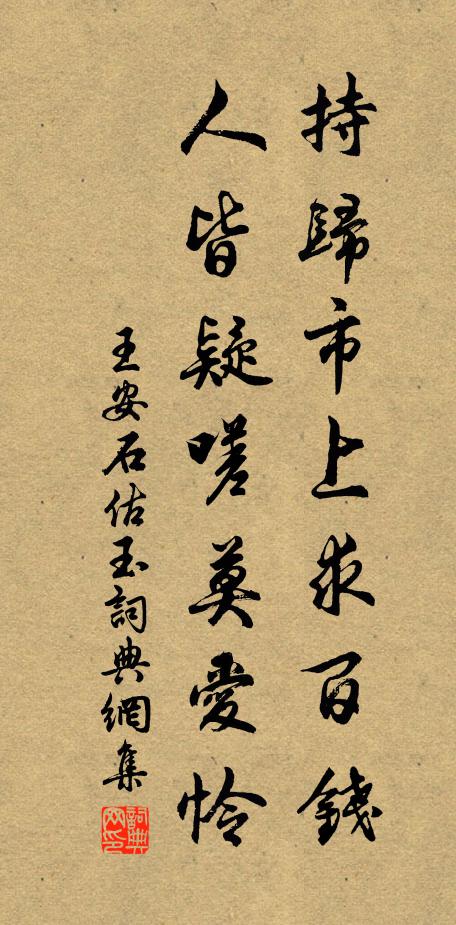 持歸市上求百錢
人皆疑嗟莫愛怜
王安石估玉詞典網集
詞典網印